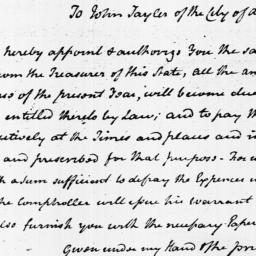 To John Tayler of the City of A
hereby appoint & authorize You the sa
from the Treasurer of this State, all the am
of the present Year, will become due
entitled thereto by Law; and to pay th
ctively at the Times and places and in
and prescribed for that purpose- For w
a sum sufficient to defray the Expences
the Comptroller will issue his warrant
also furnish you with the necessary Paper
Given under my Hand & the pri